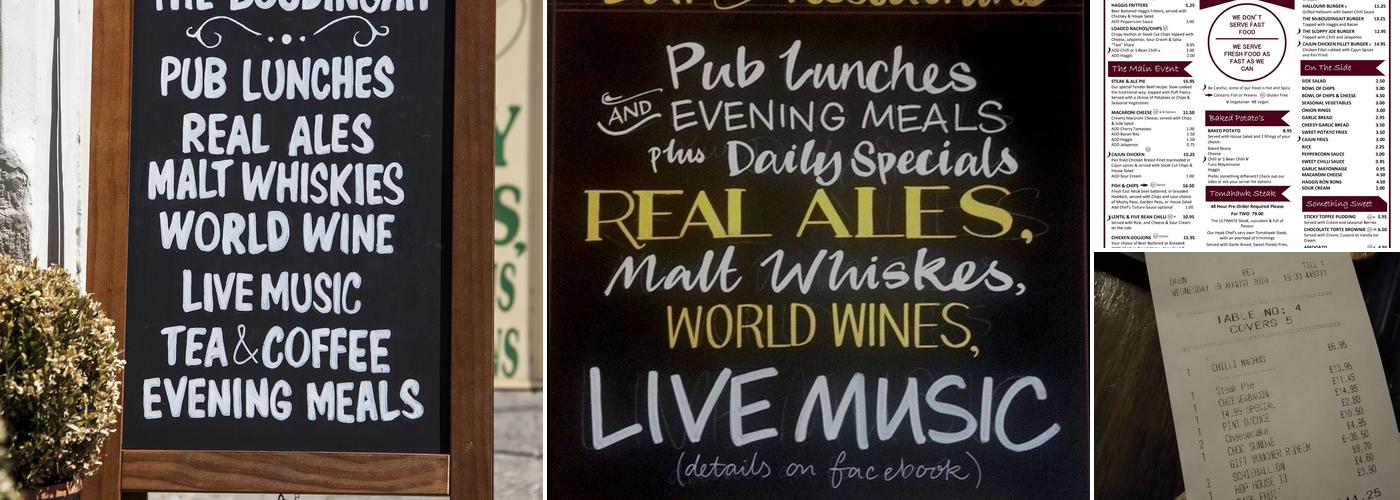 THE BOUDINGAIT
PUB LUNCHES
REAL ALES
MALT WHISKIES
WORLD WINE
LIVE MUSIC
TEA & COFFEE
EVENING MEALS
Pub Lunches
AND EVENING MEALS
plus Daily Specials
REAL ALES,
Malt Whiskes,
WORLD WINES,
LIVE MUSIC
(details on facebook)
HAGGIS FRITTERS 5.25
Beer Battered Haggis Fritters, served with
Chutney & House Salad
ADD Peppercorn Sauce 3.00
LOADED NACHOS/CHIPS
Crispy Nachos or Steak Cut Chips topped with
Cheese, Jalapenos, Sour Cream & Salsa
"Two" Share 8.95
ADD Chilli or 5 Bean Chilli v 3.00
ADD Haggis 2.00
The Main Event
STEAK & ALE PIE 16.95
Our special Tender Beef recipe. Slow cooked
the traditional way, topped with Puff Pastry
Served with a choice of Potatoes or Chips &
Seasonal Vegetables
MACARONI CHEESE 11.50
Creamy Macaroni Cheese, served with Chips
& Side Salad
ADD Cherry Tomatoes 1.00
ADD Bacon Bits 1.50
ADD Haggis 1.50
ADD Jalapenos 0.75
CAJUN CHICKEN 15.25
Pan fried Chicken Breast Fillet marinaded in
Cajun spices & served with Steak Cut Chips &
House Salad
ADD Sour Cream 1.00
FISH & CHIPS 16.50
Fresh East Neuk beer battered, or breaded
Haddock, served with Chips and your choice
of Mushy Peas, Garden Peas, or House Salad
Add Chef's Tartare Sauce optional 1.00
LENTIL & FIVE BEAN CHILLI 10.95
Served with Rice, and Cheese & Sour Cream
on the side
CHICKEN GOUJONS 15.95
Your choice of Beer Battered or Breaded.
WE DON'T
SERVE FAST
FOOD
WE SERVE
FRESH FOOD AS
FAST AS WE
CAN
Be Careful, some of our Food is Hot and Spicy
Contains Fish or Prawns Gluten Free
V Vegetarian VE Vegan
Baked Potato's
BAKED POTATO 8.95
Served with House Salad and 2 fillings of your
choice:
Baked Beans
Cheese
Chilli or 5 Bean Chilli V
Tuna Mayonnaise
Haggis
Prefer something different? Check out our
sides or ask your server for options
Tomahawk Steak
48 Hour Pre-Order Required Please
For TWO 79.00
The ULTIMATE Steak, succulent & full of
flavour
Our Head Chef's very own Tomahawk Steak,
with an overload of trimmings
Served with Garlic Bread, Sweet Potato Fries,
HALLOUMI BURGER v 11.25
Grilled Halloumi with Sweet Chilli Sauce
THE McBOUDINGAIT BURGER 13.25
Topped with Haggis and Bacon
THE SLOPPY JOE BURGER 12.95
Topped with Chilli and Jalapenos
CAJUN CHICKEN FILLET BURGER 14.95
Chicken Fillet rubbed with Cajun Spices
and Pan Fried
On The Side
SIDE SALAD 2.50
BOWL OF CHIPS 3.00
BOWL OF CHIPS & CHEESE 4.50
SEASONAL VEGETABLES 3.00
ONION RINGS 3.00
GARLIC BREAD 2.95
CHEESY GARLIC BREAD 3.50
SWEET POTATO FRIES 3.50
CAJUN FRIES 3.00
RICE 2.25
PEPPERCORN SAUCE 3.00
SWEET CHILLI SAUCE 0.95
GARLIC MAYONNAISE 0.95
MACARONI CHEESE 4.50
HAGGIS BON BONS 4.50
SOUR CREAM 1.00
Something Sweet
STICKY TOFFEE PUDDING 5.95
Served with Cream and seasonal Berries
CHOCOLATE TORTE BROWNIE 6.50
Served with Cream, Custard or Vanilla Ice
Cream
DAWN REG TILL 1
WEDNESDAY 19 AUGUST 2020 19:33 449771
TABLE NO: 4
COVERS 5
1 CHILLI NACHOS £6.95
1 Steak Pie £13.95
1 CHEESE&BACON £11.45
1 14.95 SPECIAL £14.95
1 PINT D/COKE £2.80
2 Cheesecake £10.50
1 CHOC SUNDAE £4.95
GIFT VOUCHER REDEEM
2 SCHIEHALLION £8.70
HOP HOUSE 13 £4.60
£3.90